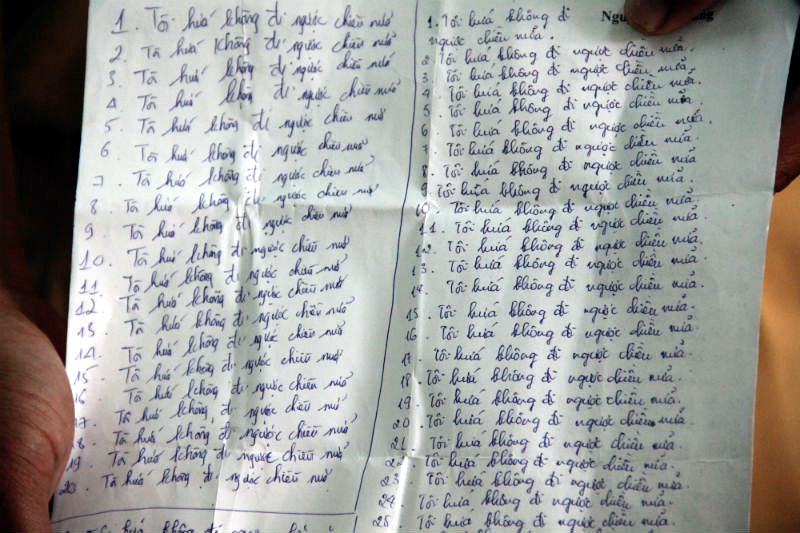 1. Tôi hứa không đi ngược chiều nữa
2. Tôi hứa không đi ngược chiều nữa
3. Tôi hứa không đi ngược chiều nữa
4. Tôi hứa không đi ngược chiều nữa
5. Tôi hứa không đi ngược chiều nữa
6. Tôi hứa không đi ngược chiều nữa
7. Tôi hứa không đi ngược chiều nữa
8. Tôi hứa không đi ngược chiều nữa
9. Tôi hứa không đi ngược chiều nữa
10. Tôi hứa không đi ngược chiều nữa
11. Tôi hứa không đi ngược chiều nữa
12. Tôi hứa không đi ngược chiều nữa
13. Tôi hứa không đi ngược chiều nữa
14. Tôi hứa không đi ngược chiều nữa
15. Tôi hứa không đi ngược chiều nữa
16. Tôi hứa không đi ngược chiều nữa
17. Tôi hứa không đi ngược chiều nữa
18. Tôi hứa không đi ngược chiều nữa
19. Tôi hứa không đi ngược chiều nữa
20. Tôi hứa không đi ngược chiều nữa
hứa không đi
1. Tôi hứa không đi
ngược chiều nữa.
2. Tôi hứa không đi ngược chiều nữa.
3. Tôi hứa không đi ngược chiều nữa.
4. Tôi hứa không đi ngược chiều nữa.
5. Tôi hứa không đi ngược chiều nữa.
6. Tôi hứa không đi ngược chiều nữa.
7. Tôi hứa không đi ngược chiều nữa.
8. Tôi hứa không đi ngược chiều nữa.
9. Tôi hứa không đi ngược chiều nữa.
10. Tôi hứa không đi ngược chiều nữa.
11. Tôi hứa không đi ngược chiều nữa.
12. Tôi hứa không đi ngược chiều nữa.
13. Tôi hứa không đi ngược chiều nữa.
14. Tôi hứa không đi ngược chiều nữa.
15. Tôi hứa không đi ngược chiều nữa.
16. Tôi hứa không đi ngược chiều nữa.
17. Tôi hứa không đi ngược chiều nữa.
18. Tôi hứa không đi ngược chiều nữa.
19. Tôi hứa không đi ngược chiều nữa.
20. Tôi hứa không đi ngược chiều nữa.
21. Tôi hứa không đi ngược chiều nữa.
22. Tôi hứa không đi ngược chiều nữa.
23. Tôi hứa không đi ngược chiều nữa.
24. Tôi hứa không đi ngược chiều nữa.
25. Tôi hứa không đi ngược chiều nữa.